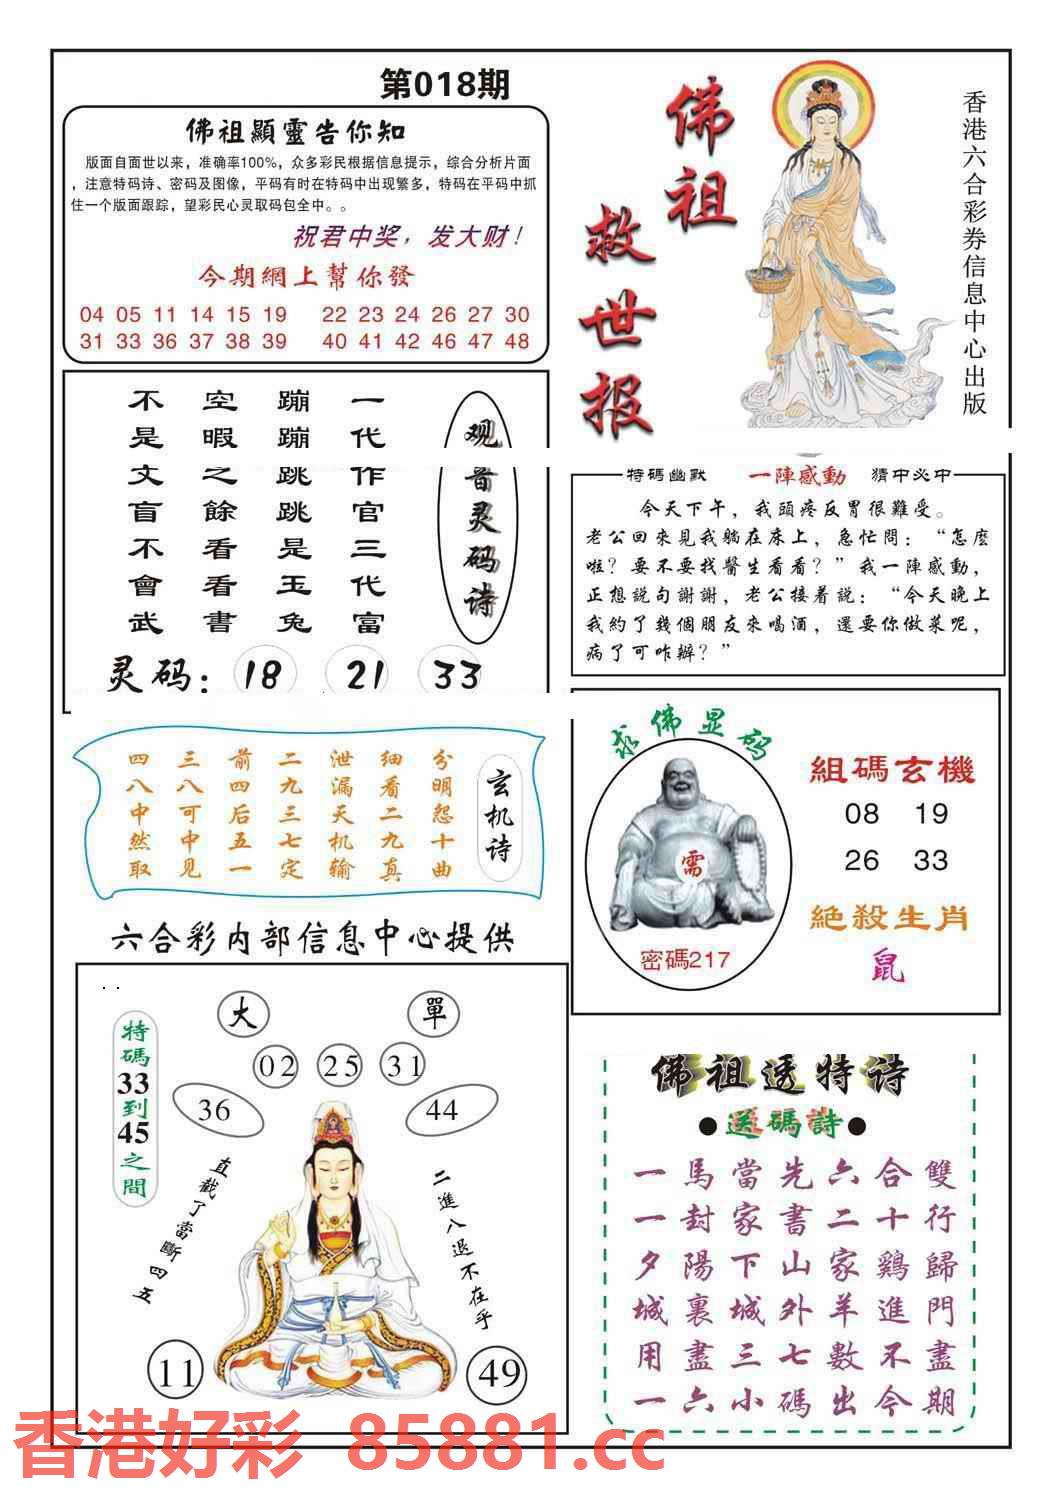 第018期
佛祖顯靈告你知
版面自面世以来，准确率100%，众多彩民根据信息提示，综合分析片面
，注意特码诗、密码及图像，平码有时在特码中出现繁多，特码在平码中抓
住一个版面跟踪，望彩民心灵取码包全中。。
祝君中奖，发大财！
今期網上幫你發
04 05 11 14 15 19 22 23 24 26 27 30
31 33 36 37 38 39 40 41 42 46 47 48
佛祖
救世报
香港六合彩券信息中心出版
观音灵码诗
一代作官三代富
蹦蹦跳跳是玉兔
空暇之餘看看書
不是文盲不會武
灵码：18 21 33
特碼幽默 一陣感動 猜中必中
今天下午，我頭疼反胃很難受。
老公回來見我躺在床上，急忙問：“怎麼
啦？要不要找醫生看看？”我一陣感動，
正想説句謝謝，老公接着説：“今天晚上
我約了幾個朋友來喝酒，還要你做菜呢，
病了可咋辦？”
玄机诗
分明怨十曲
细看二九真
泄漏天机输
二九三七定
前四后五一
三八可中见
四八中然取
求佛显码
需
密碼217
組碼玄機
08 19
26 33
絕殺生肖
鼠
六合彩内部信息中心提供
特碼33到45之間
大 單
02 25 31
36 44
直截了當斷四五
二進八退不在乎
11 49
佛祖透特诗
●送碼詩●
一馬當先六合雙
一封家書二十行
夕陽下山家鷄歸
城裏城外羊進門
用盡三七數不盡
一六小碼出今期
香港好彩 85881.cc